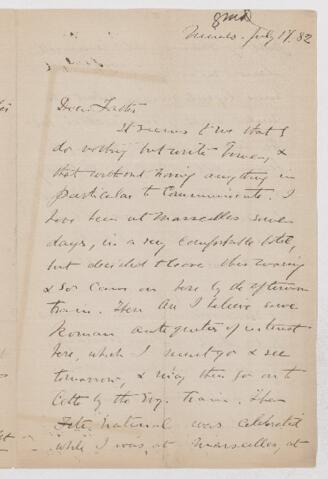 July 17. 82
Dear Father
It seems to me that I
do nothing but write home, &
that without having anything in
particular to communicate. I
have been at Marseilles some
days, in a very comfortable hotel,
but decided to leave this
& so came on here by the afternoon
train. There are I believe some
Roman antiquities of interest
here, which I must go & see
tomorrow, & may then go on to
Cette by the train. The
Fete National was celebrated
while I was at Marseilles, at